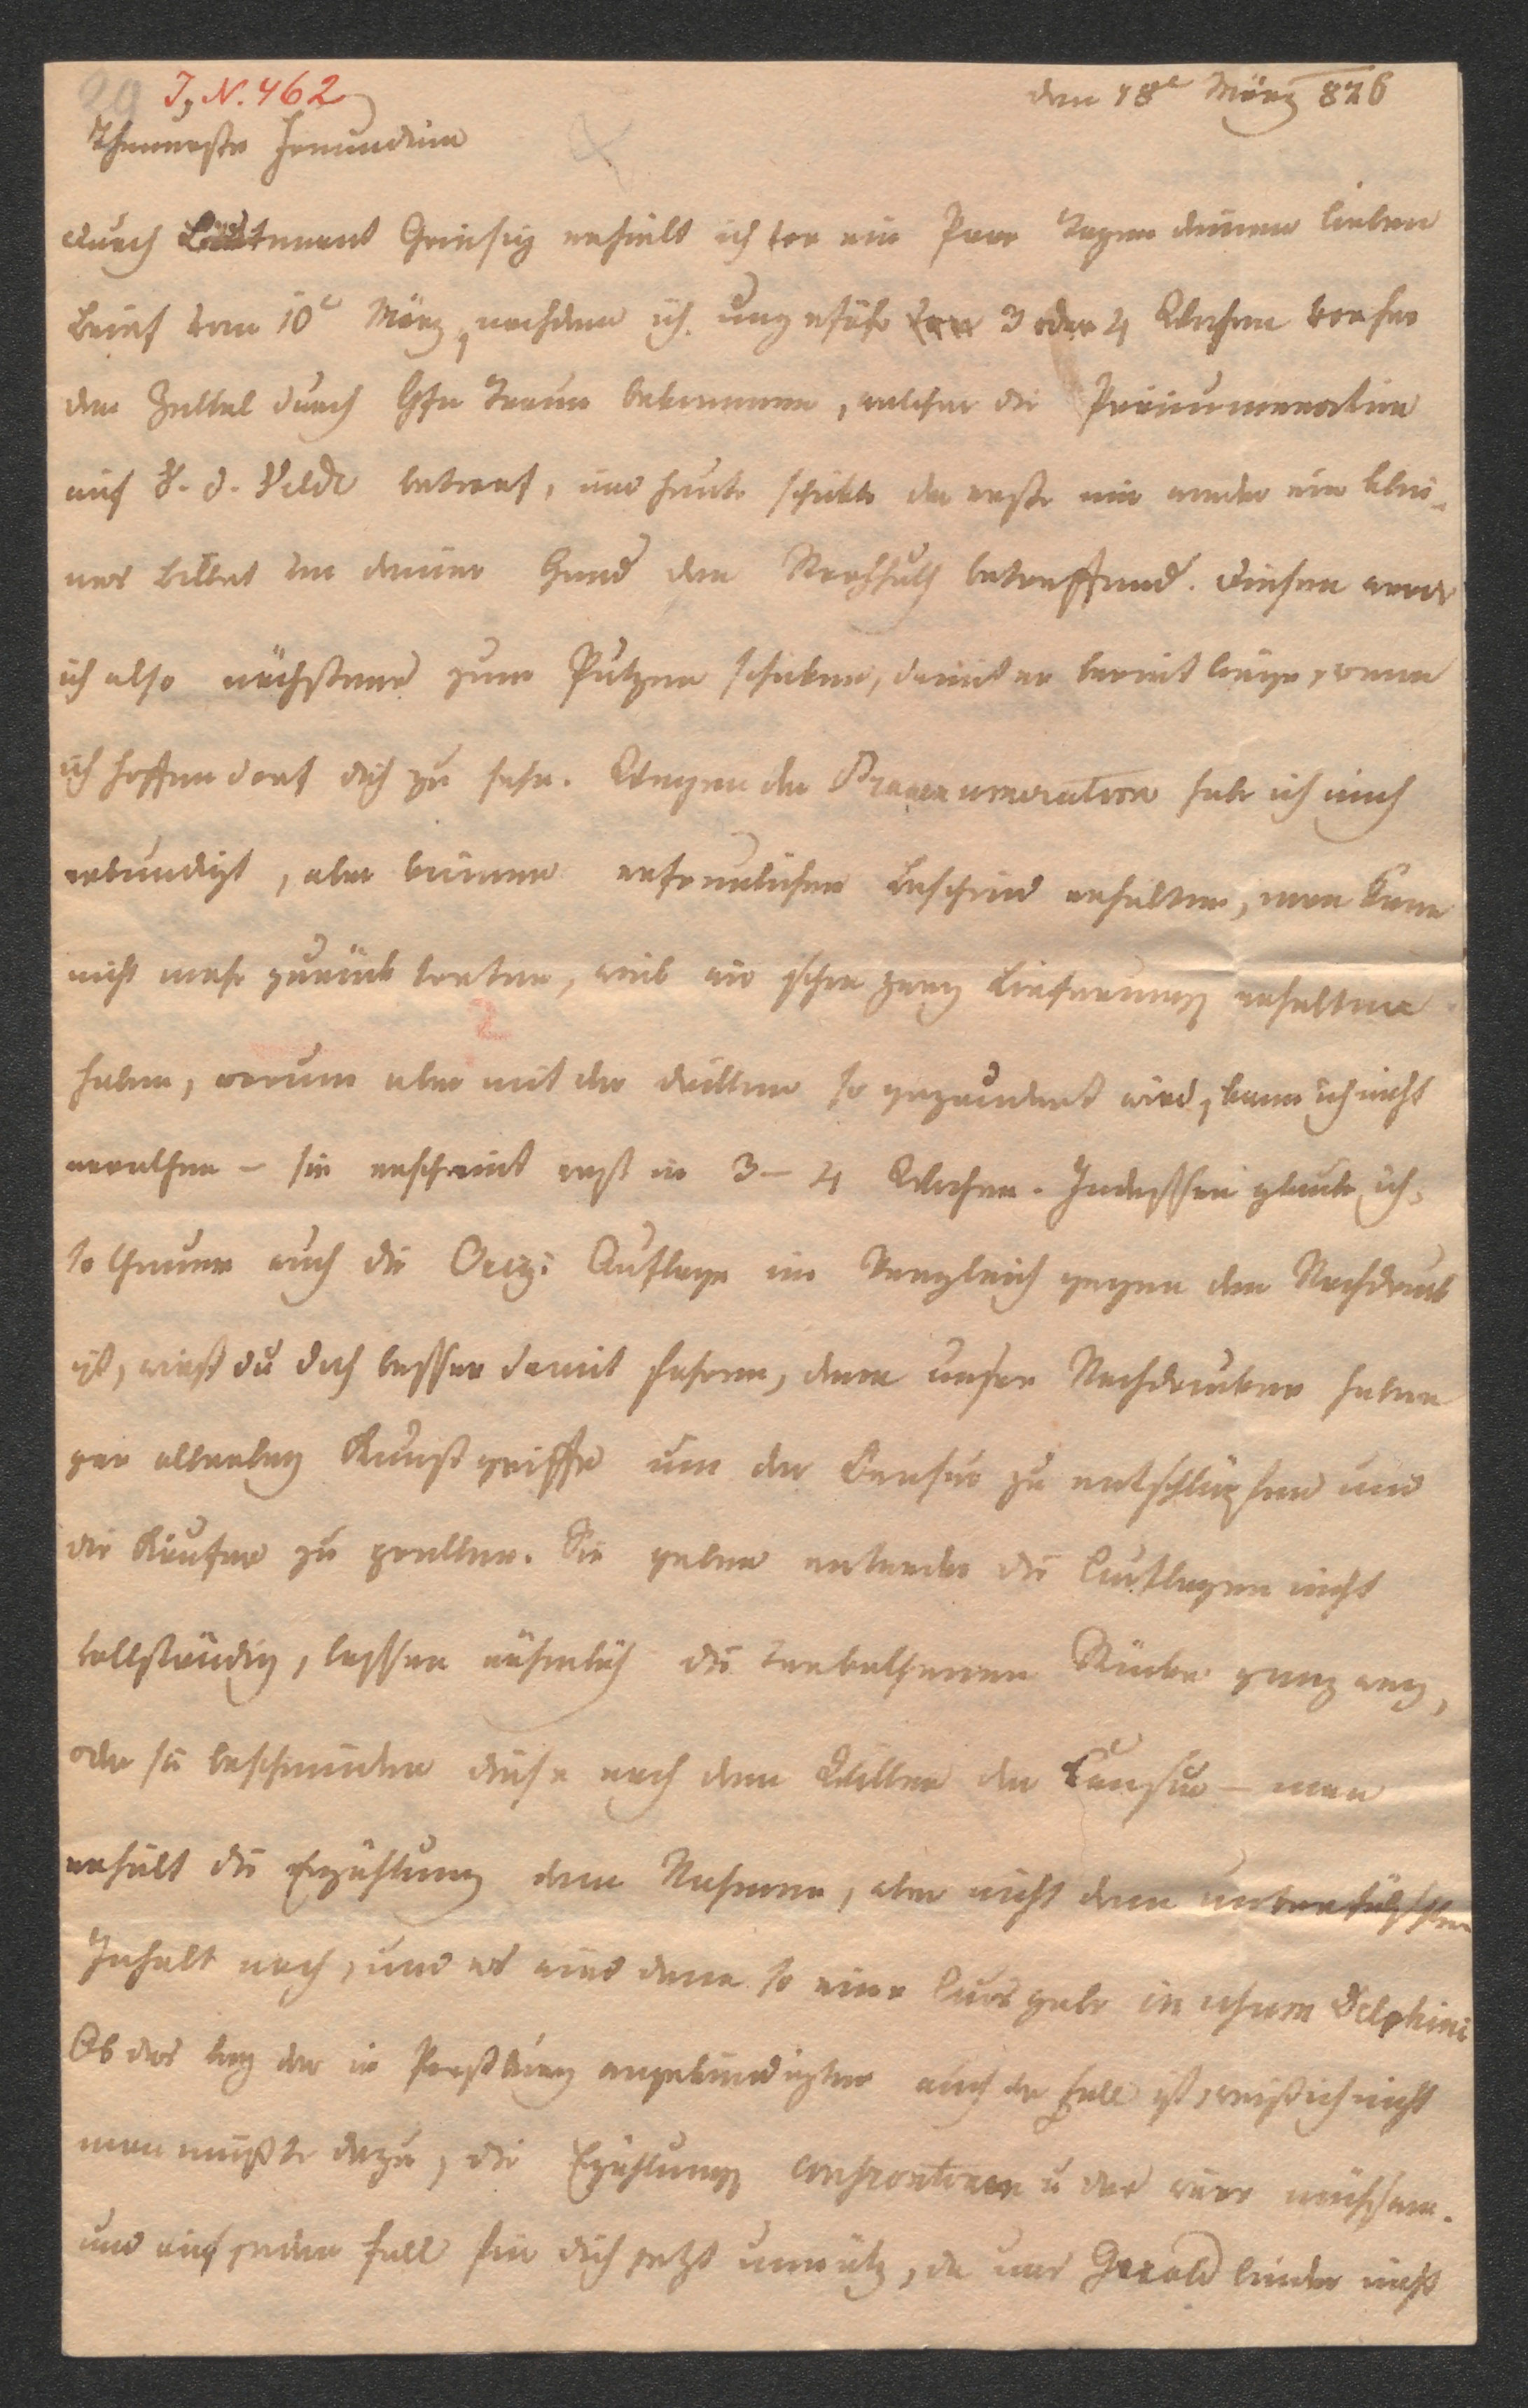 29 J, N. 462
den 18t März 826
Theuerste Freundin
durch Lieutenant Geinsig erhielt ich vor ein Paar Tagen deinen lieben
Brief vom 10t März, nachdem ich ungefähr 3 oder 4 Wochen vorher
den Zettel durch Gfn Traun bekommen, welcher die Pränumeration
auf V. d. Velde betraf, und heute schickte der erste mir wieder ein klei-
nes Billet von deiner Hand den betreffend. Diesen werde
ich also nächstens zum Putzen schicken, damit er bereit liege, wenn
ich hoffen darf dich zu sehn. Wegen der Praenumeration habe ich mich
erkundigt, aber keinen erfreulichen Bescheid erhalten, man kann
nicht mehr zurück treten, weil wir schon zwey Lieferungen erhalten
haben, warum aber mit der dritten so gezaudert wird, kann ich nicht
errathen – sie erscheint erst in 3 – 4 Wochen. Indessen glaube ich,
so theuer auch die Orig: Auflage im Vergleich gegen den Nachdruck
ist, wirst du doch besser damit fahren, denn unsere Nachdrucker haben
gar allerley Kunstgriffe um der Censur zu entschlüpfen und
die Käufer zu prellen. Sie geben entweder die Auflagen nicht
vollständig, lassen nähmlich die verbothenen Stücke ganz weg,
oder sie beschneiden diese nach dem Willen der Censur – man
erhält die Erzählung dem Nahmen, aber nicht dem unverfälschten
Inhalt nach, und es wird dann so eine Ausgabe in usum Delphini
Ob das bey der in Preßburg angekündigten auch der Fall ist, weiß ich nicht
man müßte dazu, die Erzählungen confrontiren u das wäre mühsam.
und auf jeden Fall für dich jetzt unnütz, da uns Gerold leider nicht